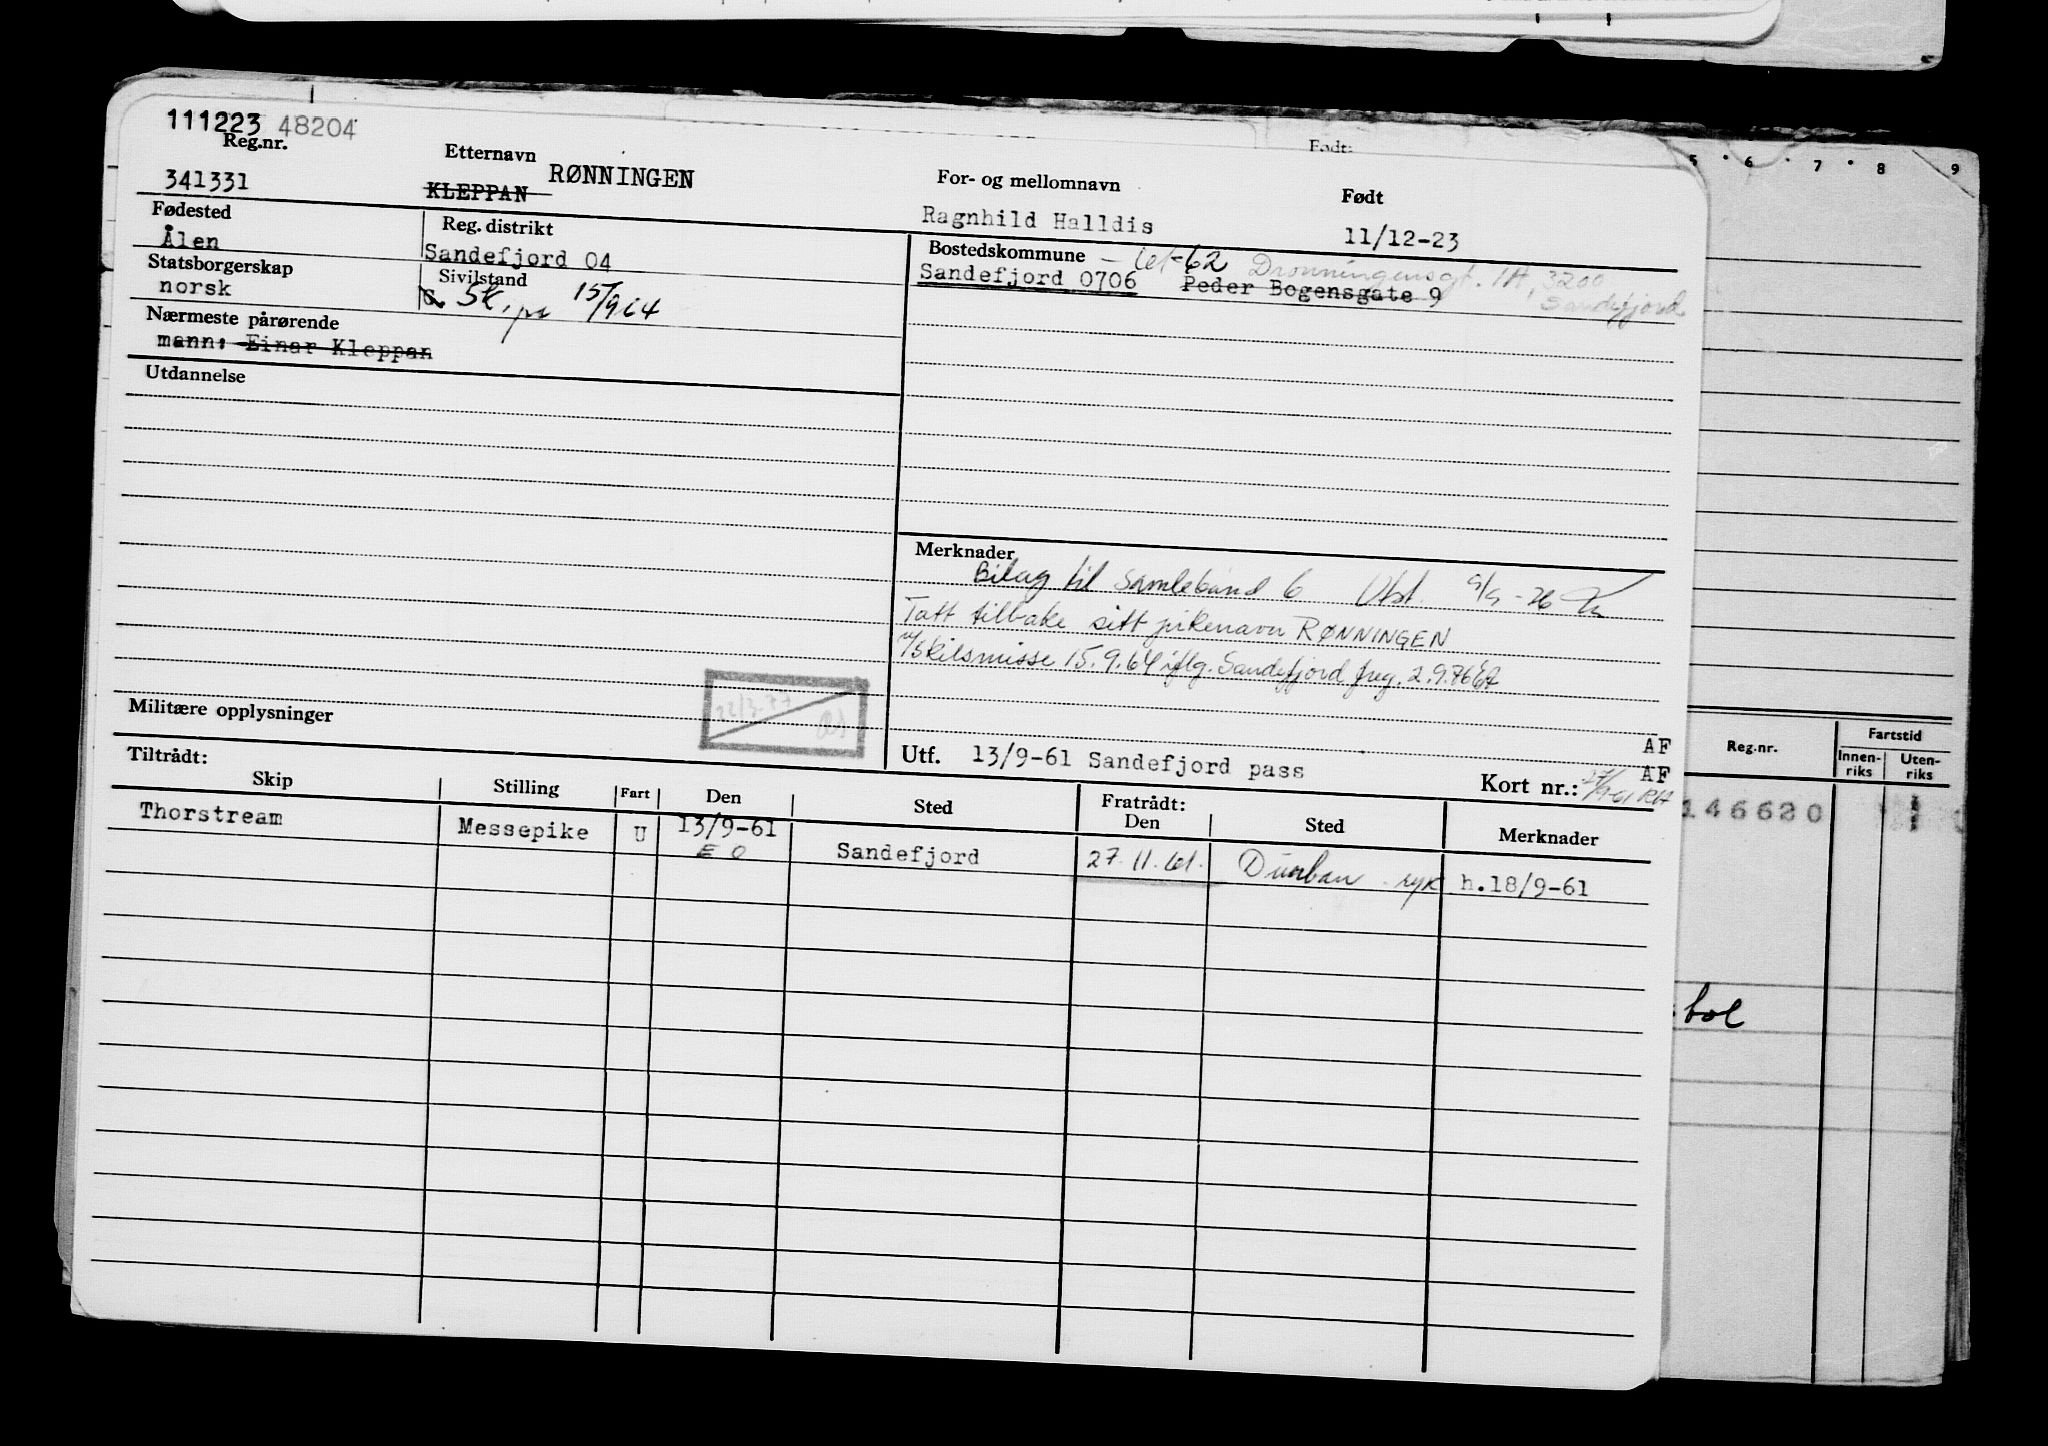 111223 48204
Reg.nr. Etternavn For- og mellomnavn Født
341331 KLEPPAN RØNNINGEN Ragnhild Halldis 11/12-23
Fødested Reg. distrikt Bostedskommune
Ålen Sandefjord 04 Sandefjord 0706 Peder Bogensgate 9
Dronningensgt. 1A, 3200
Sandefjord
Statsborgerskap Sivilstand
norsk G. SK. pr 15/9 64
Nærmeste pårørende
mann: Einar Kleppan
Utdannelse
Merknader
Bilag til samlebånd 6 Utst.
Tatt tilbake sitt pikenavn RØNNINGEN
v/skilsmisse 15.9.64 iflg. Sandefjord freg. 2.9.76
Militære opplysninger
22/3-77
AF
Utf. 13/9-61 Sandefjord pass
AF
Kort nr.:
Tiltrådt: Fratrådt:
Skip Stilling Fart Den Sted Den Sted Merknader
Thorstream Messepike U 13/9-61 Sandefjord 27.11.61. Durban syk h.18/9-61
E O
Født:
5 6 7 8 9
Reg.nr. Fartstid
Innen-riks Uten-riks
146620
bol